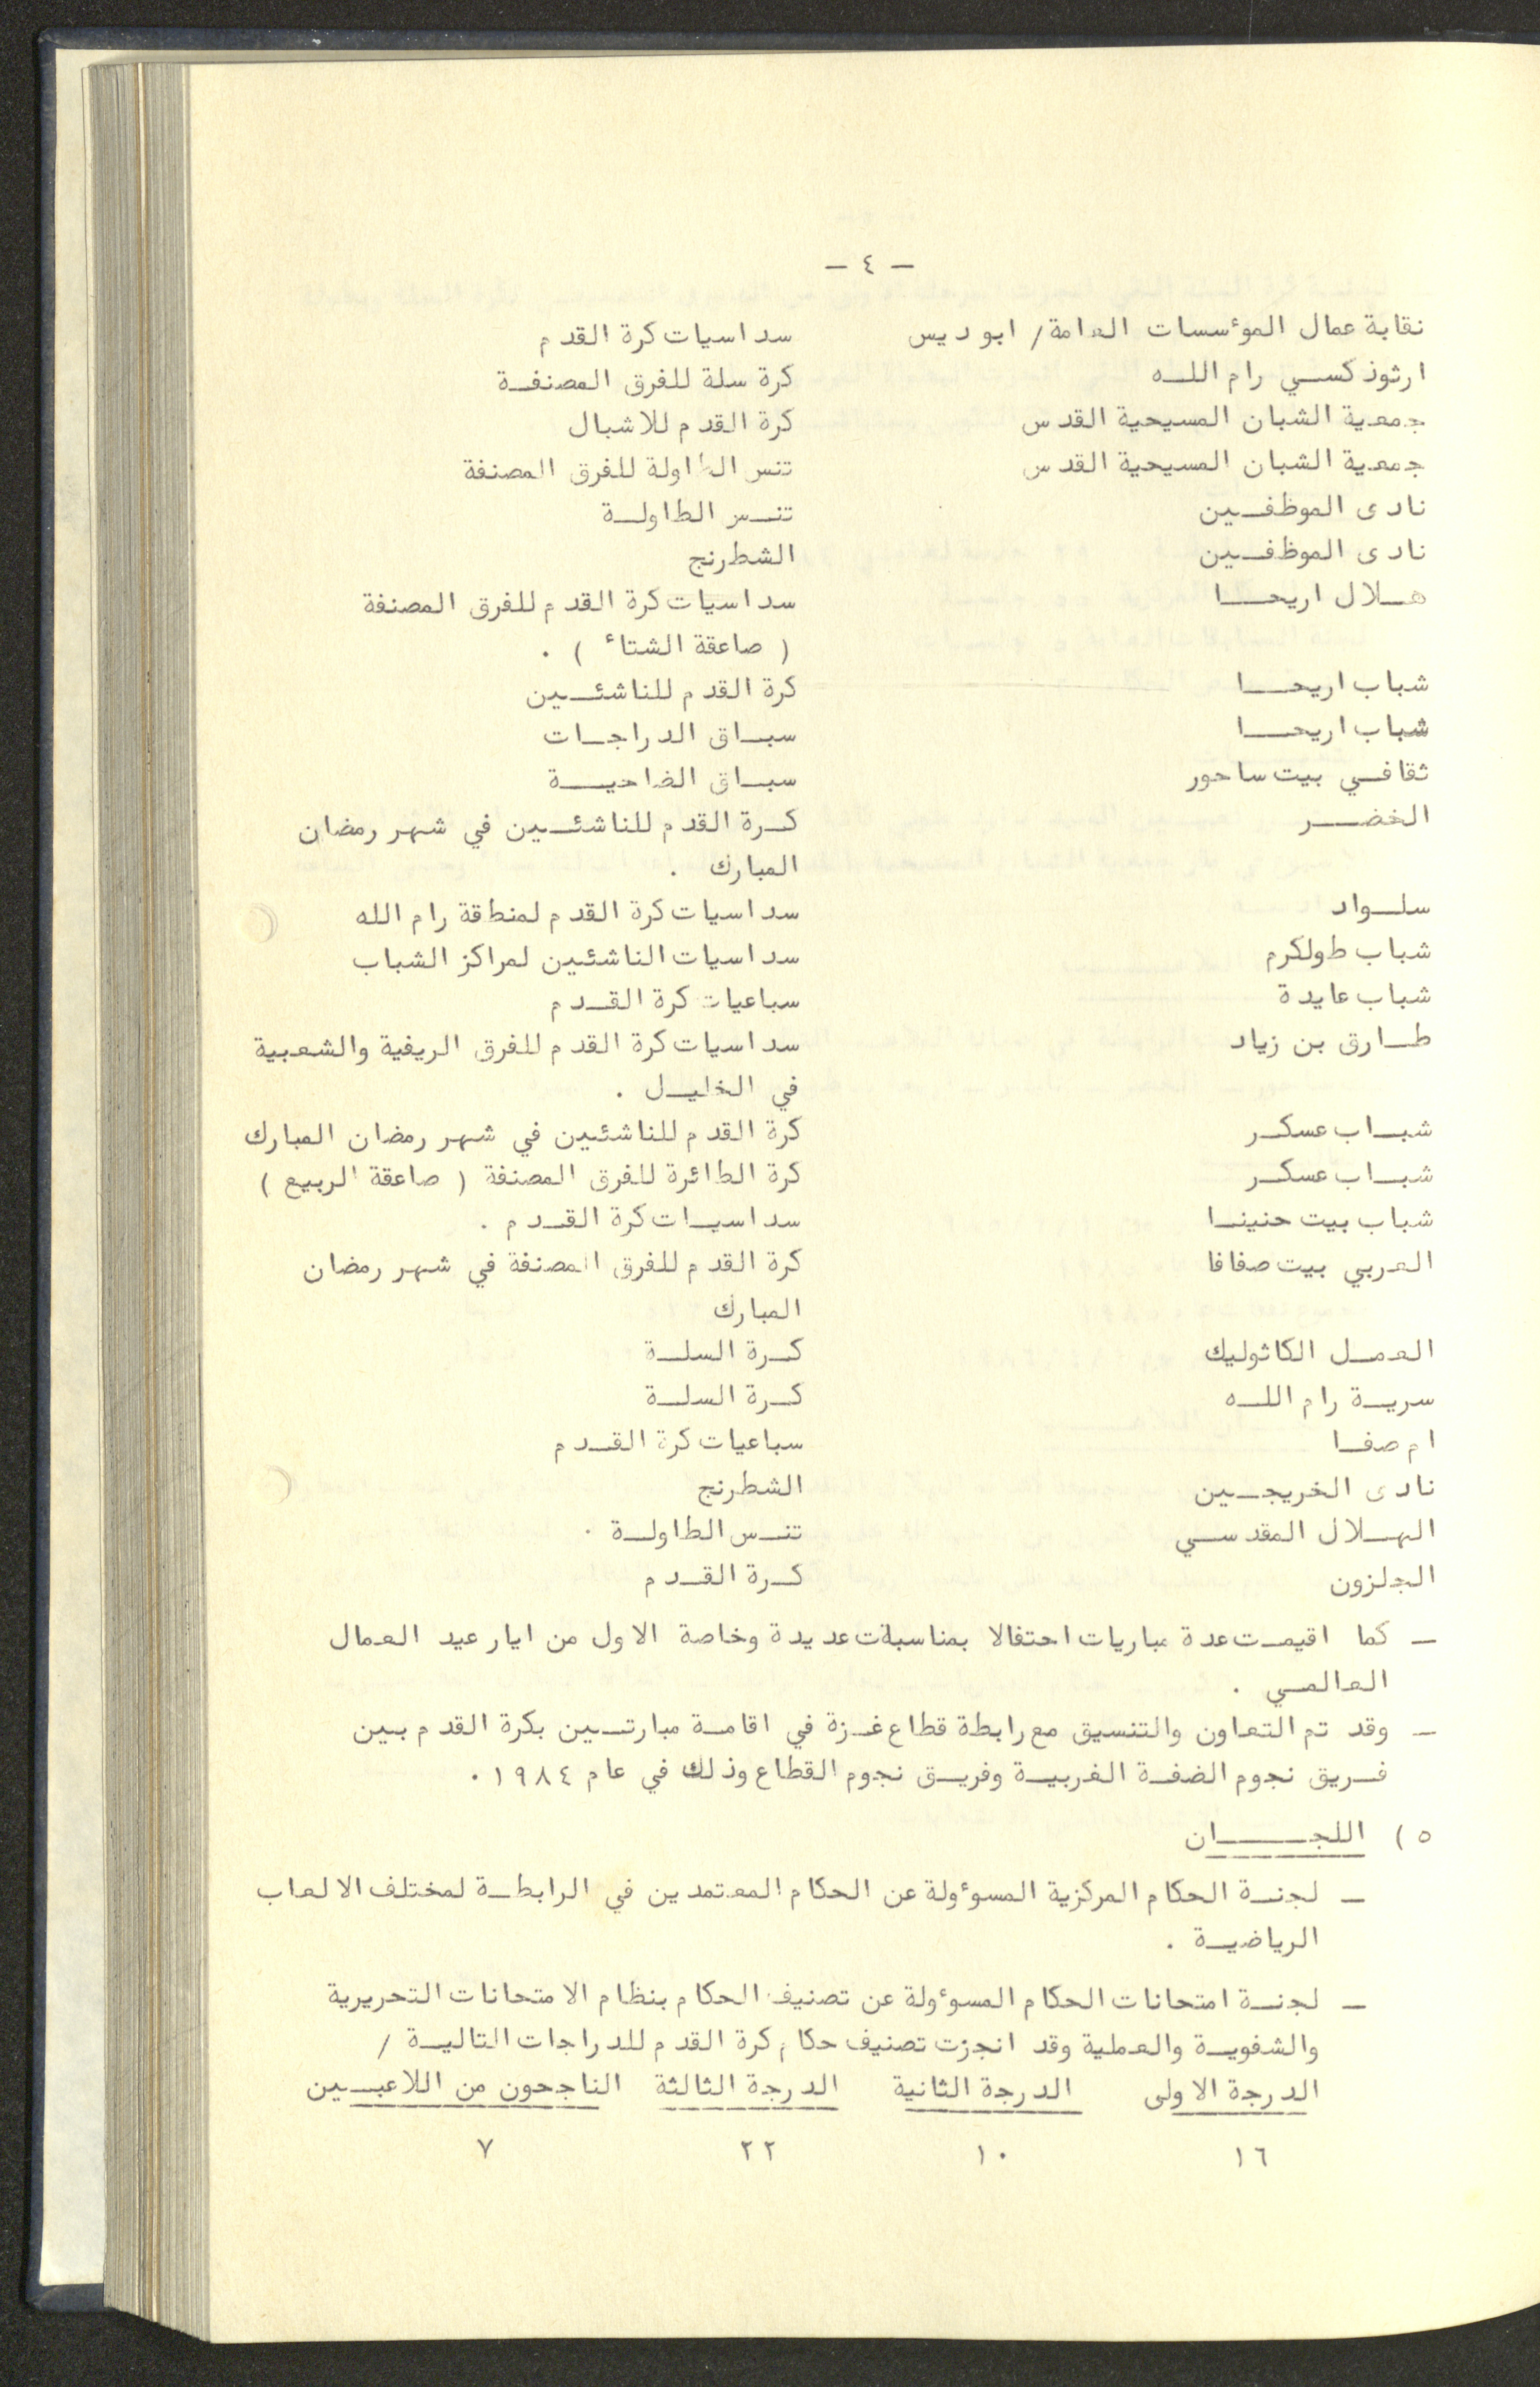 - ٤ -
نقابة عمال الموٴسسات العامة/ ابو ديس سداسيات كرة القدم
ارثوذكسي رام الله كرة سلة للفرق المصنفة
جمعية الشبان المسيحية القدس كرة القدم للاشبال
جمعية الشبان المسيحية القدس تنس الطاولة للفرق المصنفة
نادى الموظفين تنس الطاولة
نادى الموظفين الشطرنج
هلال اريحا سداسيات كرة القدم للفرق المصنفة
( صاعقة الشتاء ) .
شباب اريحا كرة القدم للناشئين
شباب اريحا سباق الدراجات
ثقافي بيت ساحور سباق الضاحية
الخضر كرة القدم للناشئين في شهر رمضان
المبارك .
سلواد سداسيات كرة القدم لمنطقة رام الله
شباب طولكرم سداسيات الناشئين لمراكز الشباب
شباب عايدة سباعيات كرة القدم
طارق بن زياد سداسيات كرة القدم للفرق الريفية والشعبية
في الخليل .
شباب عسكر كرة القدم للناشئين في شهر رمضان المبارك
شباب عسكر كرة الطائرة للفرق المصنفة ( صاعقة الربيع )
شباب بيت حنينا سداسيات كرة القدم .
العربي بيت صفافا كرة القدم للفرق المصنفة في شهر رمضان
المبارك
العمل الكاثوليك كرة السلة
سرية رام الله كرة السلة
ام صفا سباعيات كرة القدم
نادى الخريجين الشطرنج
الهلال المقدسي تنس الطاولة .
الجلزون كرة القدم
- كما اقيمت عدة مباريات احتفالا بمناسبات عديدة وخاصة الاول من ايار عيد العمال
العالمي .
- وقد تم التعاون والتنسيق مع رابطة قطاع غزة في اقامة مبارتين بكرة القدم بين
فريق نجوم الضفة الغربية وفريق نجوم القطاع وذلك في عام ١٩٨٤.
٥ ) اللجان
- لجنة الحكام المركزية المسوٴولة عن الحكام المعتمدين في الرابطة لمختلف الالعاب
الرياضية .
- لجنة امتحانات الحكام المسوٴولة عن تصنيف الحكام بنظام الامتحانات التحريرية
والشفوية والعملية وقد انجزت تصنيف حكام كرة القدم للدراجات التالية /
الدرجة الاولى الدرجة الثانية الدرجة الثالثة الناجحون من اللاعبين
١٦ ١٠ ٢٢ ٧